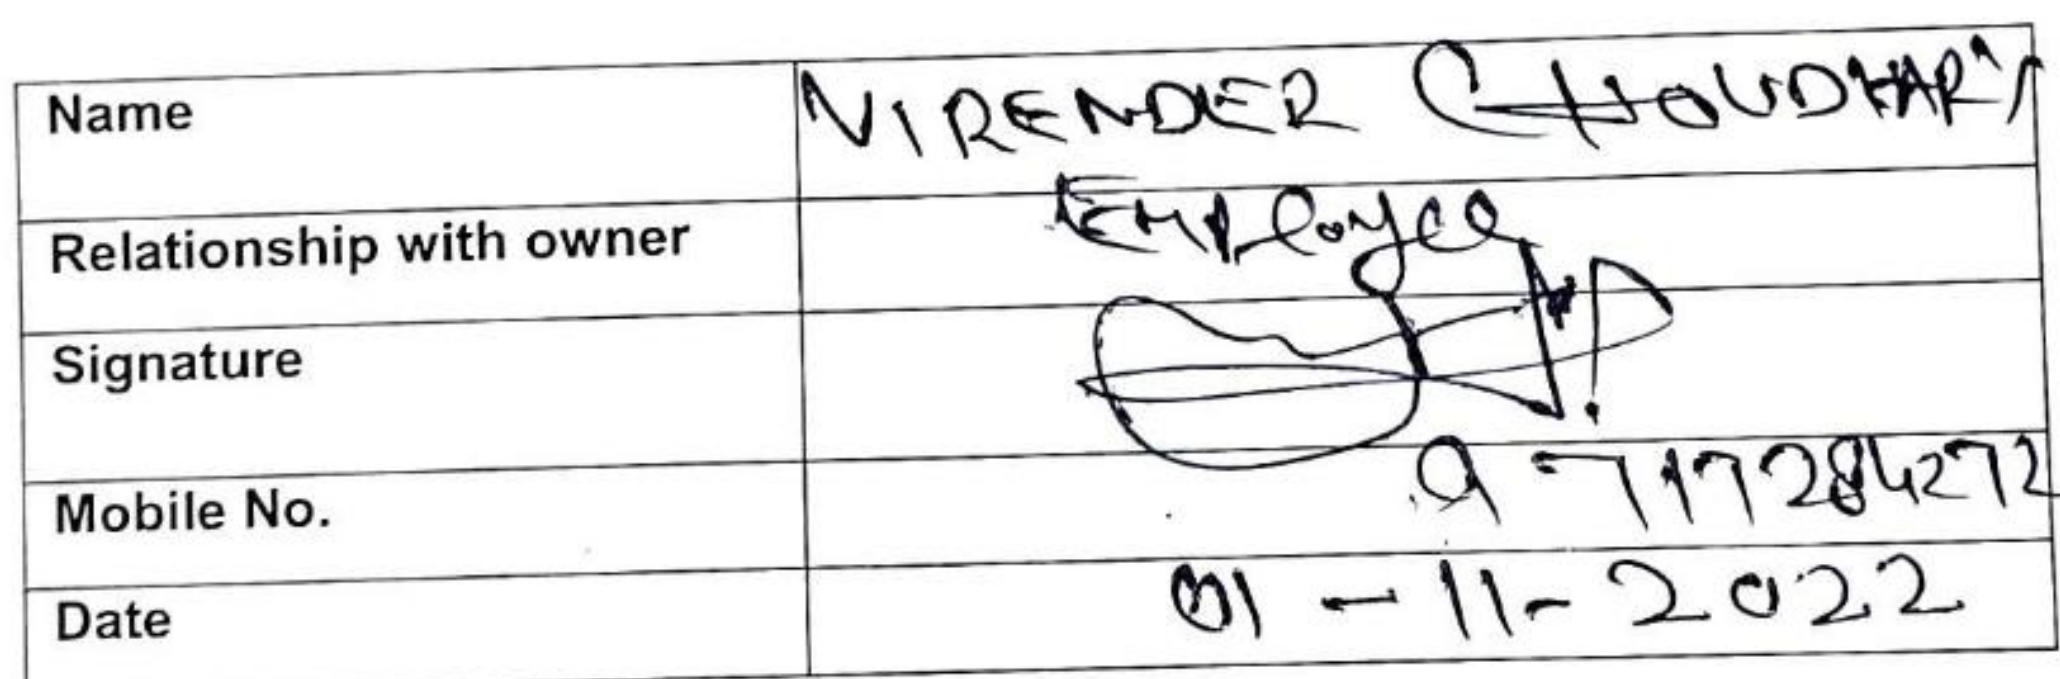 Name VIRENDER CHOUDHARY
Relationship with owner Employee
Signature
Mobile No. 9717284272
Date 01-11-2022